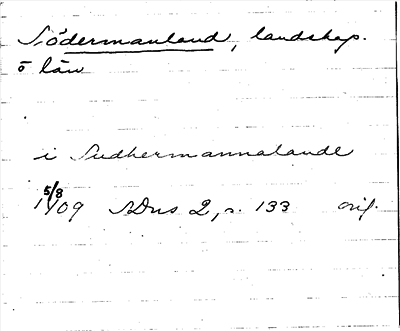 Södermanland, landskap.
o län
i Sudhermannalande
5/8 1409 SDns 2, s. 133 orig.